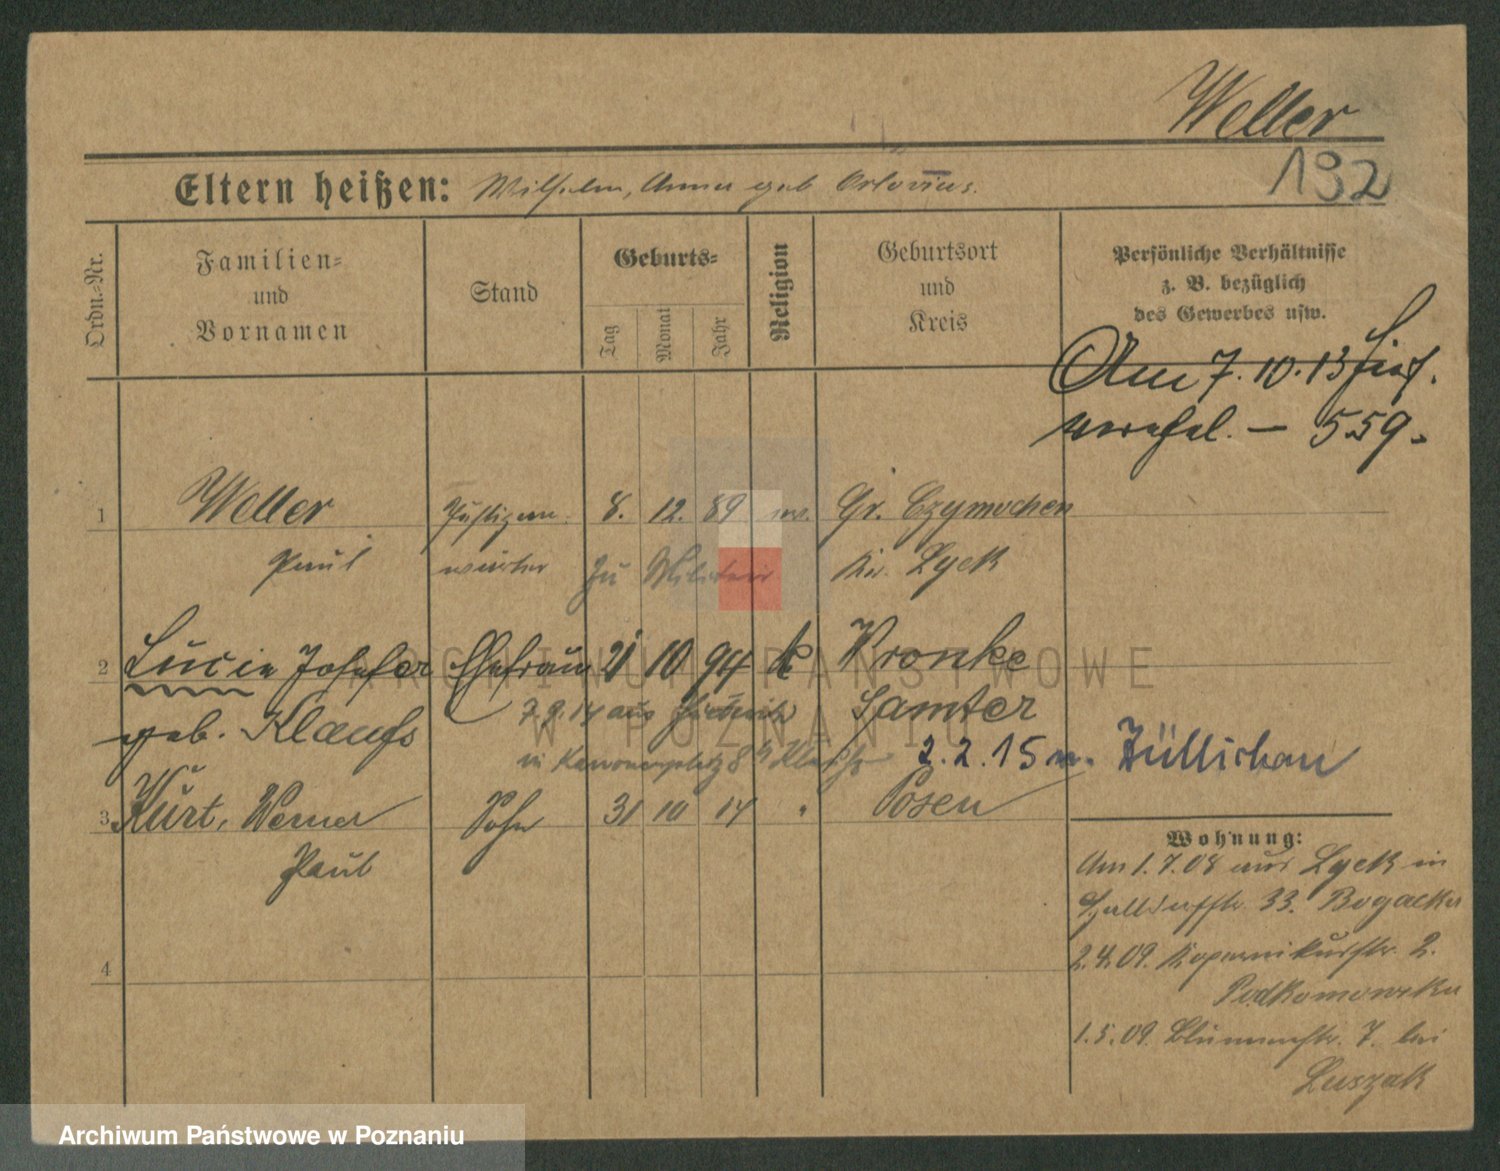 Weller
192
Eltern heißen: Wilhelm, Anna geb Orlovius.
Ordn.-Nr.
Familien-
und
Vornamen
Stand
Geburts-
Tag
Monat
Jahr
Religion
Geburtsort
und
Kreis
Persönliche Verhältnisse
z. B. bezüglich
des Gewerbes usw.
Am 7. 10. 13 hier
verehel. — 559.
1 Weller 8. 12. 89 ev. Gr. Czymochen
Paul zu Militär Kr. Lyck
2 Lucie Ehefrau 21 10 94 k Wronke
geb. 7.9.14 aus Samter
in Kanonenplatz 2.2.15 n. Züllichau
3 Kurt, Werner Sohn 31 10 14 " Posen
Paul
4
Wohnung:
Am 1.7.08 aus Lyck in
33. Bogacka
2.4.09. Kopernikusstr. 2.
Podkomorska
1.5.09. Blumenstr. 7. bei
Luszak
ARCHIWUM PAŃSTWOWE
W POZNANIU
Archiwum Państwowe w Poznaniu